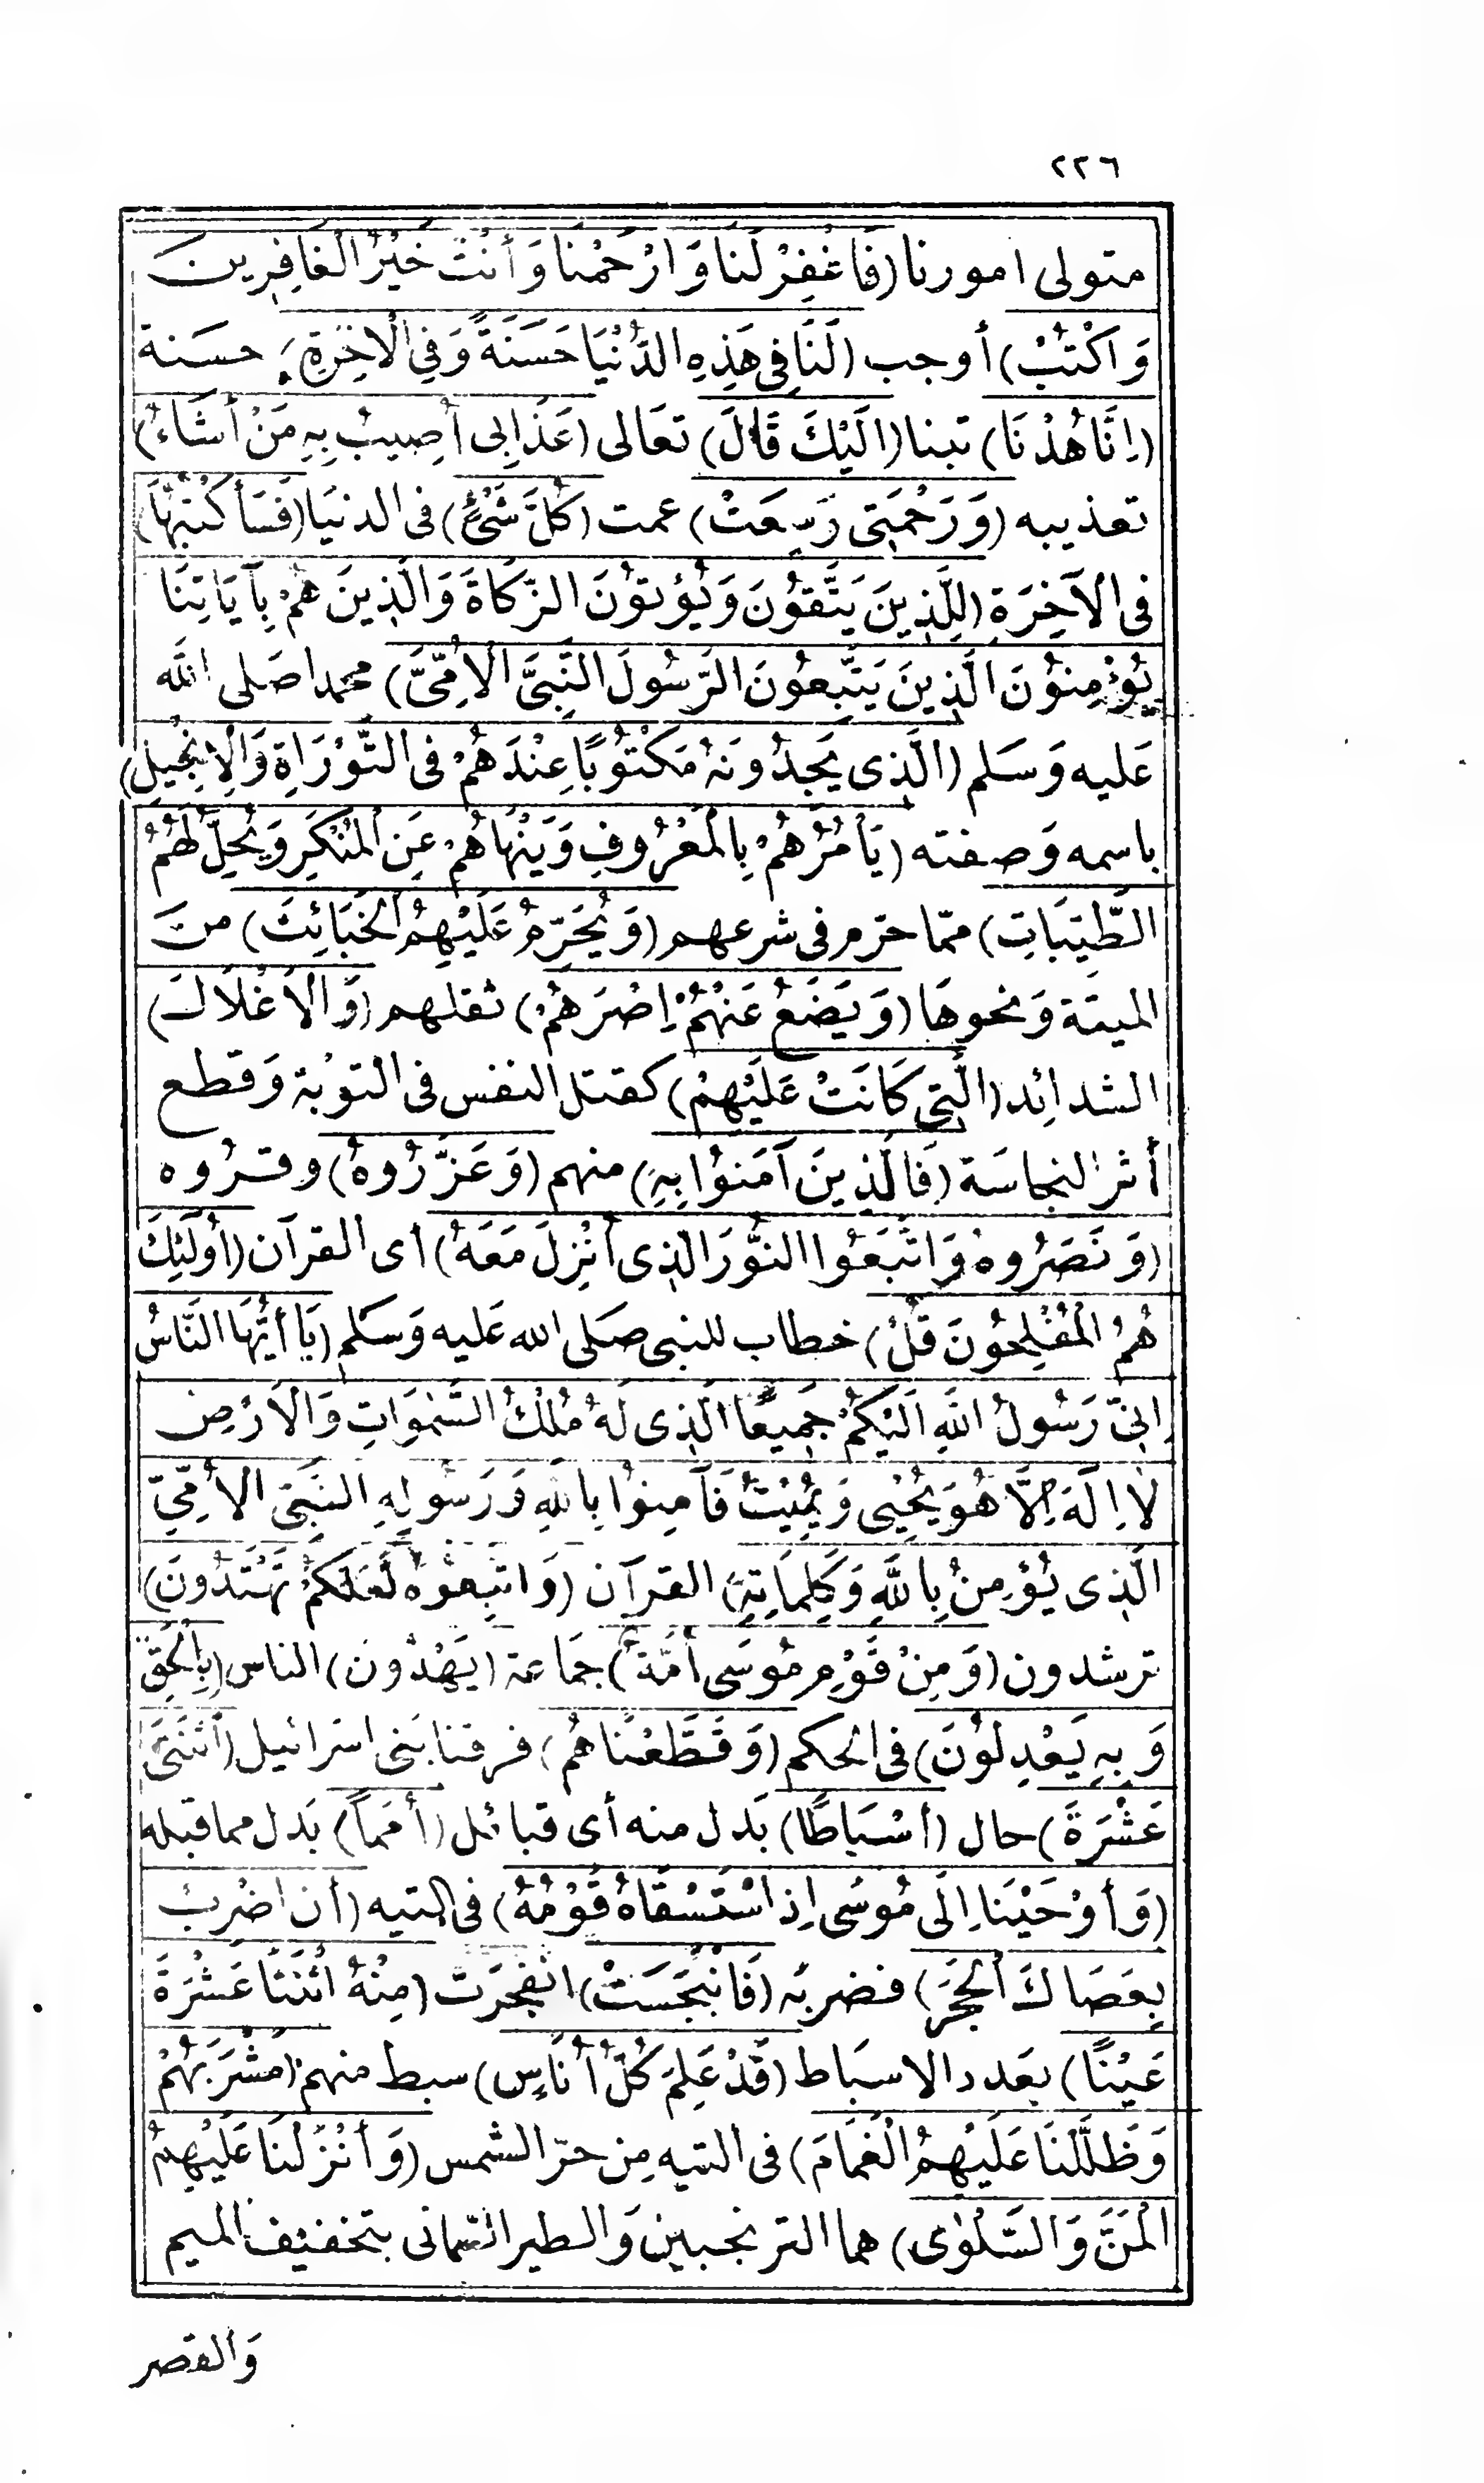 ٢٢٦
متولى امورنا (فَاغْفِرْ لَنَا وَارْحَمْنَا وَأَنْتَ خَيْرُ الْغَافِرِينَ
وَاكْتُبْ) أوجب (لَنَا فِى هَذِهِ الدُّنْيَا حَسَنَةً وَفِى الْآخِرَةِ) حسَنة
(اِنَّا هُدْنَا) تبنا (اِلَيْكَ قَالَ) تعَالى (عَذَابِى أُصِيبُ بِهِ مَنْ أَشَاءُ)
تعذيبه (وَرَحْمَتِى وَسِعَتْ) عمت (كُلَّ شَىْءٍ) فى الدنيَا (فَسَأَكْتُبُهَا)
فى الْآخِرَةِ (لِلَّذِينَ يَتَّقُونَ وَيُؤْتُونَ الزَّكَاةَ وَالَّذِينَ هُمْ بِآيَاتِنَا
يُؤْمِنُونَ الَّذِينَ يَتَّبِعُونَ الرَّسُولَ النَّبِىَّ الْاُمِّىَّ) محمدا صَلى الله
عَليه وَسَلم (الَّذِى يَجِدُونَهُ مَكْتُوبًا عِنْدَهُمْ فِى التَّوْرَاةِ وَالْاِنْجِيلِ)
باسمه وَصفته (يَأْمُرُهُمْ بِالْمَعْرُوفِ وَيَنْهَاهُمْ عَنِ الْمُنْكَرِ وَيُحِلُّ لَهُمُ
الطَّيِّبَاتِ) ممّا حرّم فى شرعهم (وَيُحَرِّمُ عَلَيْهِمُ الْخَبَائِثَ) منَ
الميتَة وَنحوهَا (وَيَضَعُ عَنْهُمْ اِصْرَهُمْ) ثقلهم (وَالْاَغْلَالَ)
الشدائد (الَّتِى كَانَتْ عَلَيْهِمْ) كقتل النفس فى التوبة وَقطع
أثر النجاسَة (فَالَّذِينَ آمَنُوا بِهِ) منهم (وَعَزَّرُوهُ) وقروه
(وَنَصَرُوهُ وَاتَّبَعُوا النُّورَ الَّذِى أُنْزِلَ مَعَهُ) أى القرآن (أُولَئِكَ
هُمُ الْمُفْلِحُونَ قُلْ) خطاب للنبى صَلى الله عَليه وَسَلم (يَا أَيُّهَا النَّاسُ
اِنِّى رَسُولُ اللَّهِ اِلَيْكُمْ جَمِيعًا الَّذِى لَهُ مُلْكُ السَّمٰوَاتِ وَالْاَرْضِ
لَا اِلَهَ اِلَّا هُوَ يُحْيِى وَيُمِيتُ فَآمِنُوا بِاللَّهِ وَرَسُولِهِ النَّبِىِّ الْأُمِّىِّ
الَّذِى يُؤْمِنُ بِاللَّهِ وَكَلِمَاتِهِ) القرآن (وَاتَّبِعُوهُ لَعَلَّكُمْ تَهْتَدُونَ)
ترشدون (وَمِنْ قَوْمِ مُوسَى أُمَّةٌ) جمَاعة (يَهْدُونَ) الناس (بِالْحَقِّ
وَبِهِ يَعْدِلُونَ) فى الحكم (وَقَطَّعْنَاهُمُ) فرقنا بَنى اسرَائيل (اثْنَتَىْ
عَشْرَةَ) حال (أَسْبَاطًا) بَدل منه أى قبائل (أُمَمًا) بَدل مما قبله
(وَأَوْحَيْنَا اِلَى مُوسَى اِذِ اسْتَسْقَاهُ قَوْمُهُ) فى التيه (أَنِ اضْرِبْ
بِعَصَاكَ الْحَجَرَ) فضربَه (فَانْبَجَسَتْ) انفجرَت (مِنْهُ اثْنَتَا عَشْرَةَ
عَيْنًا) بعَدد الاسبَاط (قَدْ عَلِمَ كُلُّ أُنَاسٍ) سبط منهم (مَشْرَبَهُمْ
وَظَلَّلْنَا عَلَيْهِمُ الْغَمَامَ) فى التيه مِن حرّ الشمس (وَأَنْزَلْنَا عَلَيْهِمُ
الْمَنَّ وَالسَّلْوٰى) هما الترنجبين وَالطير السّمانى بتخفيف الميم
وَالقصر